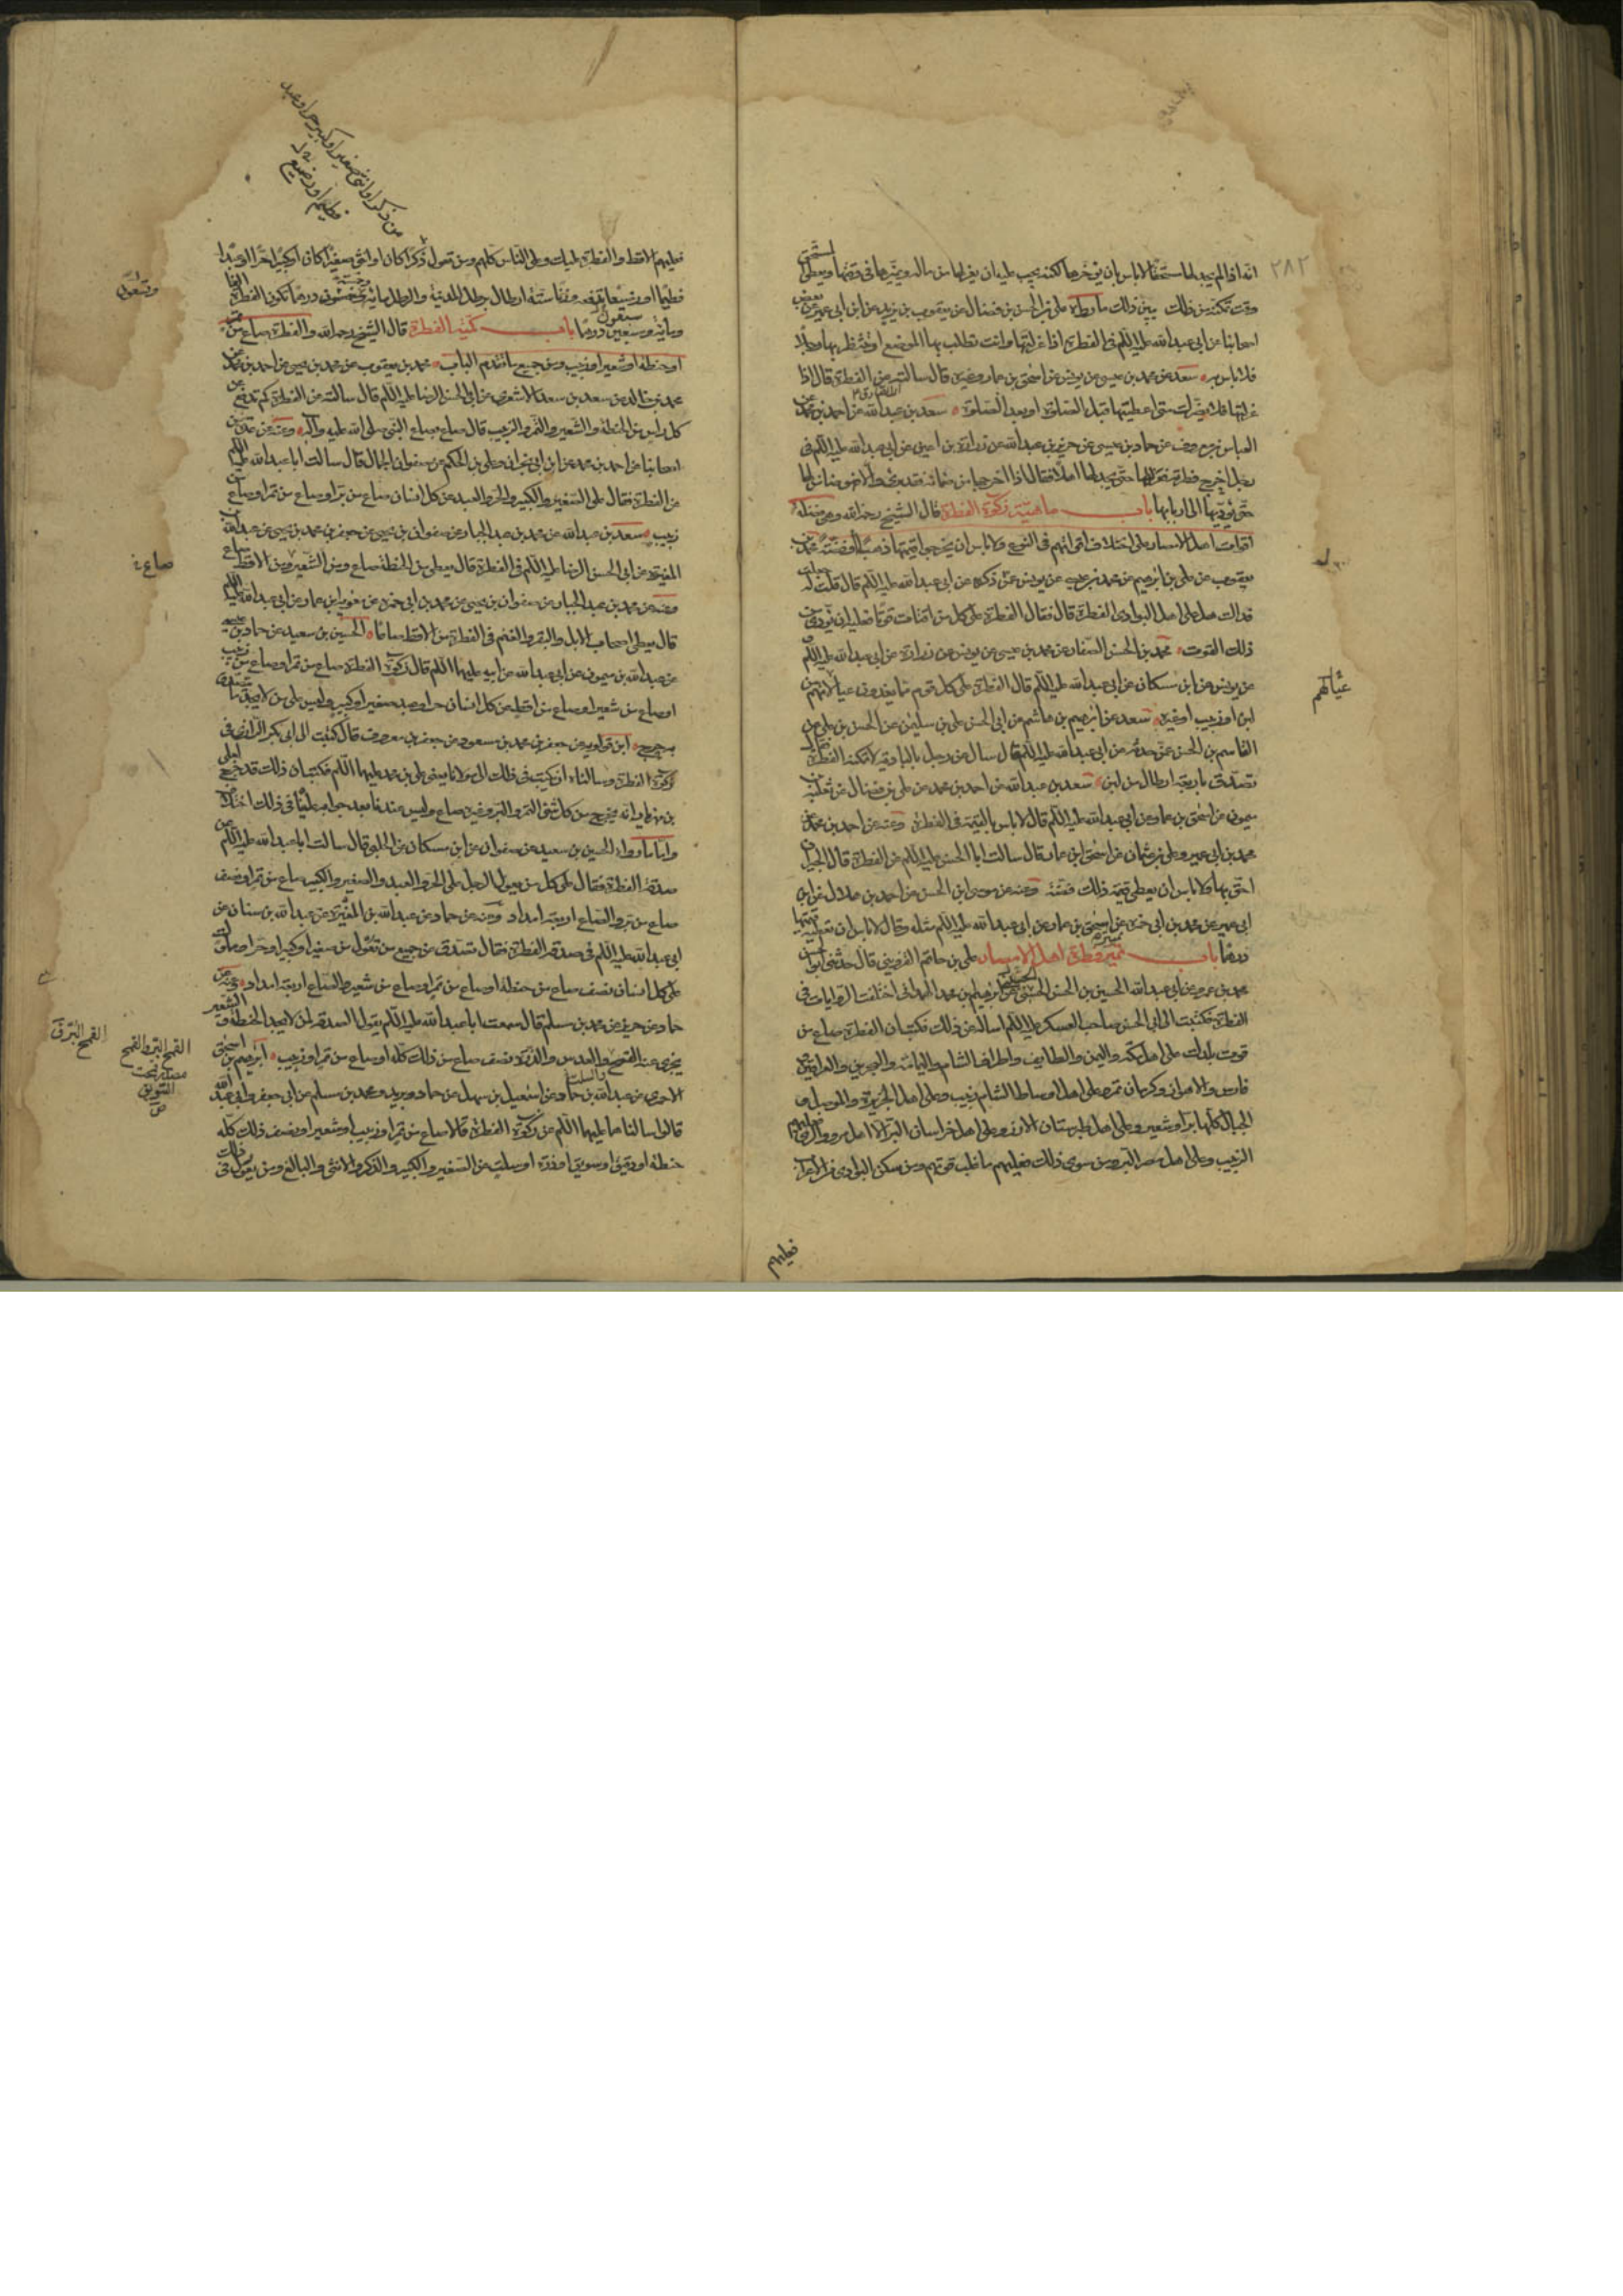 ٢٨٢
انه اذا لم يجد لها مستحقا لا باس بان يؤخرها لكنه يجب عليه ان يعزلها من ماله ويميزها في وقتها ويعطى مستحق
وقت تمكنه من ذلك يبين ذلك ما رواه على بن الحسن بن فضال عن يعقوب بن يزيد عن ابن ابى عمير عن بعض
اصحابنا عن ابى عبد الله عليه السلم في الفطرة اذا عزلتها وانت تطلب بها الموضع او تنتظر بها رجلا
فلا باس به سعد عن محمد بن عيسى عن يونس عن اسحق بن عمار وغيره قال سالته عن الفطرة قال اذا
عزلتها فلا يضرك متى اعطيتها قبل الصلوة او بعد الصلوة سعد بن عبد الله عن احمد بن محمد عن
العباس بن معروف عن حماد بن عيسى عن حريز بن عبد الله عن زرارة بن اعين عن ابى عبد الله عليه السلم في
رجل اخرج فطرته فعزلها حتى يجد لها اهلا فقال اذا اخرجها من ضمانه فقد برئ والا فهو ضامن لها
حتى يؤديها الى اربابها باب ماهية زكوة الفطرة قال الشيخ رحمه الله وهى فضلة
اقوات اهل الامصار على اختلاف اقواتهم في النوع ولا باس ان يخرجوا قيمتها ذهبا او فضة محمد بن
يعقوب عن على بن ابرهيم عن محمد بن عيسى عن يونس عمن ذكره عن ابى عبد الله عليه السلم قال قلت له جعلت
فداك هل على اهل البوادى الفطرة قال فقال الفطرة على كل من اقتات قوتا فعليه ان يؤدى من
ذلك القوت محمد بن الحسن الصفار عن محمد بن عيسى عن يونس عن زرارة عن ابى عبد الله عليه السلم و
عن يونس عن ابن مسكان عن ابى عبد الله عليه السلم قال الفطرة على كل قوم مما يغذون عيالاتهم من
عيالهم
لبن او زبيب او غيره سعد عن ابرهيم بن هاشم عن ابى الحسن على بن سليمن عن الحسن بن على عن
القاسم بن الحسن عمن حدثه عن ابى عبد الله عليه السلم قال سال عن رجل بالبادية لا تمكنه الفطرة
تصدق باربعة ارطال من لبن سعد بن عبد الله عن احمد بن محمد عن على بن فضال عن ثعلبة بن
ميمون عن اسحق بن عمار عن ابى عبد الله عليه السلم قال لا باس بالقيمة في الفطرة وعنه عن احمد بن محمد
محمد بن ابى عمير وعلى بن عثمان عن اسحق ابن عمار قال سالت ابا الحسن عليه السلم عن الفطرة قال الجيران
احق بها ولا باس ان يعطى قيمة ذلك فضة وعنه عن موسى ابن الحسن عن احمد بن هلال عن ابن
ابى عمير عن محمد بن ابى حمزه عن اسحق بن عمار عن ابى عبد الله عليه السلم مثله وقال لا باس ان تعطيه قيمتها
درهما باب تميز فطرة اهل الامصار على بن حاتم القزوينى قال حدثنى ابو الحسن
محمد بن عمرو عن ابى عبد الله الحسين بن الحسن الحسنى عن ابرهيم بن محمد الهمدانى اختلفت الروايات في
الفطرة فكتبت الى ابى الحسن صاحب العسكر عليه السلم اساله عن ذلك فكتب ان الفطرة صاع من
قوت بلدك على اهل مكة واليمن والطايف واطراف الشام واليمامة والبحرين والعراقين
فارس والاهواز وكرمان تمر وعلى اهل اوساط الشام زبيب وعلى اهل الجزيرة والموصل و
الجبال كلها بر او شعير وعلى اهل طبرستان الارز وعلى اهل خراسان البر الا اهل مرو والرى فعليهم
الزبيب وعلى اهل مصر البر ومن سوى ذلك فعليهم ما غلب قوتهم ومن سكن البوادى من الاعراب
فعليهم
من ذكر او انثى صغير او كبير حر او عبد
فطيم او رضيع
فعليهم الاقط والفطرة عليك وعلى الناس كلهم ومن تعول ذكرا كان او انثى صغيرا كان او كبيرا حرا او عبدا
فطيما او رضيعا تدفعه وزنا ستة ارطال برطل المدينة والرطل مائة وخمسة وتسعون درهما تكون الفطرة الفا
وتسعون
ومائة وسبعين درهما باب كمية الفطرة قال الشيخ رحمه الله والفطرة صاع من تمر
او حنطة او شعير او زبيب ومن جميع ما تقدم الباب محمد بن يعقوب عن محمد بن عيسى عن احمد بن محمد عن
محمد بن خالد عن سعد بن سعد الاشعرى عن ابى الحسن الرضا عليه السلم قال سالته عن الفطرة كم تدفع عن
كل راس من الحنطة والشعير والتمر والزبيب قال صاع بصاع النبى صلى الله عليه وآله وعنه عن عدة من
اصحابنا عن احمد بن محمد عن ابن ابى نجران وعلى بن الحكم عن صفوان الجمال قال سالت ابا عبد الله عليه السلم
عن الفطرة فقال على الصغير والكبير والحر والعبد عن كل انسان صاع من بر او صاع من تمر او صاع من
زبيب سعد بن عبد الله عن محمد بن عبد الجبار عن صفوان بن يحيى عن جعفر بن محمد بن يحيى عن عبد الله بن
المغيرة عن ابى الحسن الرضا عليه السلم في الفطرة قال يعطى من الحنطة صاع ومن الشعير ومن الاقط صاع
صاع
وعنه عن محمد بن عبد الجبار عن صفوان بن يحيى عن محمد بن ابى حمزه عن معوية ابن عمار عن ابى عبد الله عليه السلم
قال يعطى اصحاب الابل والبقر والغنم في الفطرة من الاقط صاعا الحسين بن سعيد عن حماد بن عيسى
عن عبد الله بن ميمون عن ابى عبد الله عن ابيه عليهما السلم قال زكوة الفطرة صاع من تمر او صاع من زبيب
او صاع من شعير او صاع من اقط عن كل انسان حر او عبد صغير او كبير وليس على من لا يجد ما يتصدق
به حرج ابن قولويه عن جعفر بن محمد بن مسعود عن جعفر بن معروف قال كتبت الى ابى بكر الرازى في
زكوة الفطرة وسالناه ان يكتب في ذلك الى مولانا يعنى على بن محمد عليهما السلم فكتب ان ذلك قد خرج لعلى
بن مهزيار انه يخرج من كل شئ التمر والبر وغيره صاع وليس عندنا بعد جوابه علينا في ذلك اختلاف
واما ما رواه الحسين بن سعيد عن صفوان عن ابن مسكان عن الحلبى قال سالت ابا عبد الله عليه السلم عن
صدقة الفطرة فقال على كل من يعول الرجل على الحر والعبد والصغير والكبير صاع من تمر او نصف
صاع من بر والصاع اربعة امداد وعنه عن حماد عن عبد الله بن المغيرة عن عبد الله بن سنان عن
ابى عبد الله عليه السلم في صدقة الفطرة فقال تصدق عن جميع من تعول من صغير او كبير او حر او مملوك
على كل انسان نصف صاع من حنطة او صاع من تمر او صاع من شعير والصاع اربعة امداد وعنه عن
حماد عن حريز عن محمد بن مسلم قال سمعت ابا عبد الله عليه السلم يقول الصدقة لمن لا يجد الحنطة والشعير
يجزى عنه القمح والعدس والذرة نصف صاع من ذلك كله او صاع من تمر او زبيب ابرهيم بن اسحق
الاحمرى عن عبد الله بن حماد عن اسمعيل بن سهل عن حماد وبريد ومحمد بن مسلم عن ابى جعفر وابى عبد الله
قالوا سالناهما عليهما السلم عن زكوة الفطرة قالا صاع من تمر او زبيب او شعير او نصف ذلك كله
حنطة او دقيق او سويق او ذرة او سلت عن الصغير والكبير والذكر والانثى والبالغ ومن يعول في ذلك